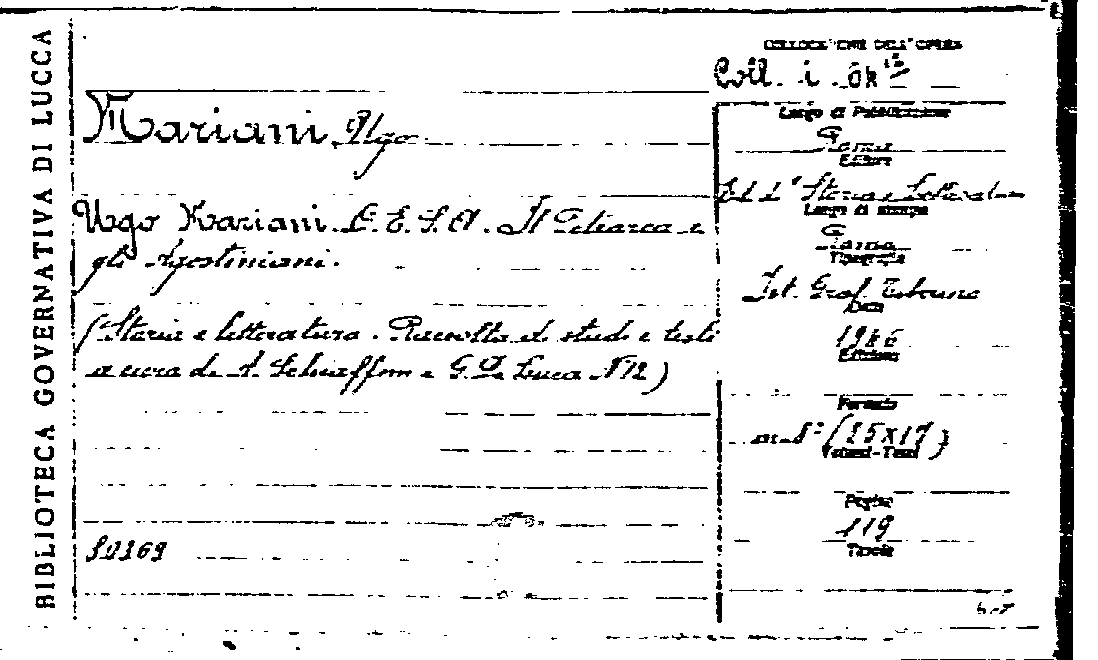 BIBLIOTECA GOVERNATIVA DI LUCCA
COLLOCAZIONE DELL'OPERA
Coll. i.
Mariani Ugo
Ugo Mariani. O. E. S. A. Il Petrarca e
gli Agostiniani.
(Storia e letteratura. Raccolta di studi e testi
a cura di A. Schiaffini e G. De Luca N 12)
10169
Luogo di Pubblicazione
Roma
Editore
Ed. di "Storia e Letteratura
Luogo di stampa
Roma
Tipografia
Ist. Graf. Tiberino
Data
1946
Edizione
Formato
in-8° (25x17)
Volumi-Tomi
Pagine
119
Tavole